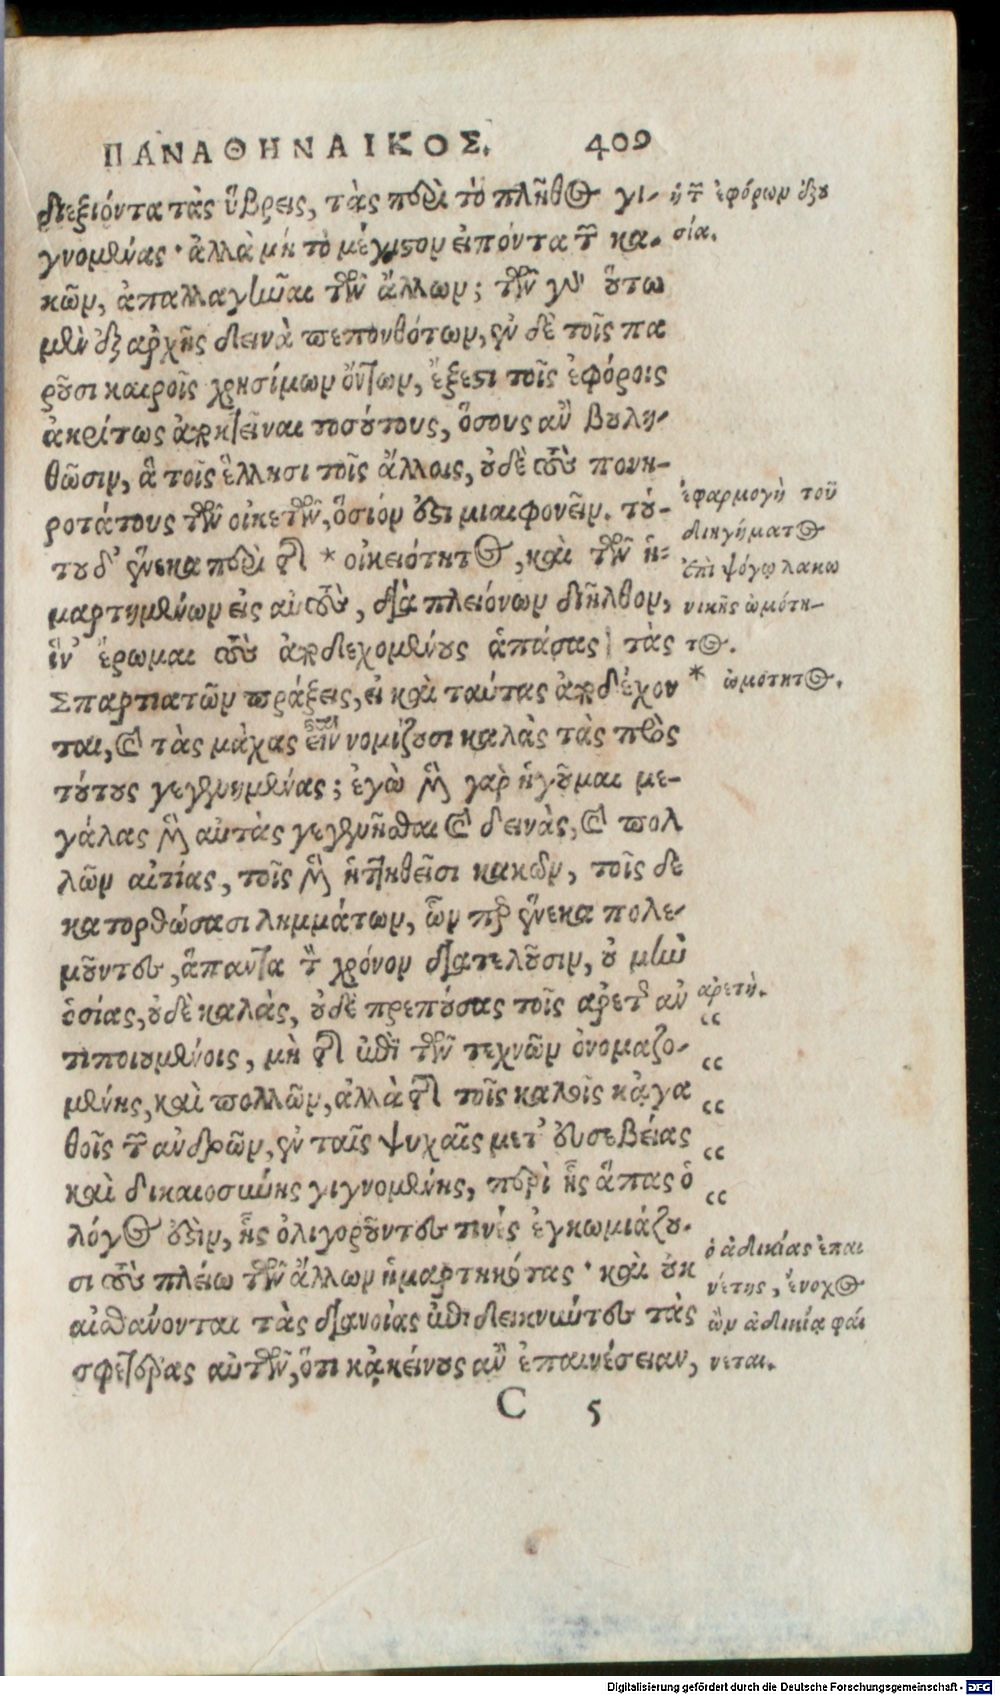 ΠΑΝΑΘΗΝΑΙΚΟΣ. 409
διεξιόντα τὰς ὕβρεις, τὰς περὶ τὸ πλῆθος γι-
γνομένας· ἀλλὰ μὴ τὸ μέγιστον εἰπόντα τῶν κα-
κῶν, ἀπαλλαγῆναι τῶν ἄλλων; τῶν γὰρ οὕτω
μὲν ἐξ ἀρχῆς δεινὰ πεπονθότων, ἐν δὲ τοῖς πα
ροῦσι καιροῖς χρησίμων ὄντων, ἔξεστι τοῖς ἐφόροις
ἀκρίτως ἀποκτεῖναι τοσούτους, ὅσους ἂν βουλη-
θῶσιν, ἃ τοῖς ἕλλησι τοῖς ἄλλοις, οὐδὲ τοὺς πονη-
ροτάτους τῶν οἰκετῶν, ὅσιόν ἐστι μιαιφονεῖν. τού-
του δ' ἕνεκα περὶ τῆς * οἰκειότητος, καὶ τῶν ἡ-
μαρτημένων εἰς αὐτοὺς, διὰ πλειόνων διῆλθον,
ἵν' ἔρωμαι τοὺς ἀποδεχομένους ἁπάσας τὰς
Σπαρτιατῶν πράξεις, εἰ καὶ ταύτας ἀποδέχον
ται, καὶ τὰς μάχας εἶναι νομίζουσι καλὰς τὰς πρὸς
τούτους γεγενημένας; ἐγὼ μὲν γὰρ ἡγοῦμαι με-
γάλας μὲν αὐτὰς γεγενῆσθαι καὶ δεινὰς, καὶ πολ
λῶν αἰτίας, τοῖς μὲν ἡττηθεῖσι κακῶν, τοῖς δὲ
κατορθώσασι λημμάτων, ὧν περ ἕνεκα πολε-
μοῦντες, ἅπαντα τὸν χρόνον διατελοῦσιν, οὐ μὴν
ὁσίας, οὐδὲ καλὰς, οὐδὲ πρεπούσας τοῖς ἀρετῆς ἀν
τιποιουμένοις, μὴ τῆς ἐπὶ τῶν τεχνῶν ὀνομαζο-
μένης, καὶ πολλῶν, ἀλλὰ τῆς τοῖς καλοῖς κἀγα
θοῖς τῶν ἀνδρῶν, ἐν ταῖς ψυχαῖς μετ' εὐσεβείας
καὶ δικαιοσύνης γιγνομένης, περὶ ἧς ἅπας ὁ
λόγος ἐστὶν, ἧς ὀλιγοροῦντες τινὲς ἐγκωμιάζου-
σι τοὺς πλείω τῶν ἄλλων ἡμαρτηκότας· καὶ οὐκ
αἰσθάνονται τὰς διανοίας ἐπιδεικνύντες τὰς
σφετέρας αὐτῶν, ὅτι κἀκείνους ἂν ἐπαινέσειαν,
C 5
ἡ τῶν ἐφόρων ἐξου
σία.
ἐφαρμογὴ τοῦ
διηγήματος
ἐπὶ ψόγῳ λακω
νικῆς ὠμότη-
τος.
* ὠμότητος.
ἀρετή.
“
“
“
“
“
ὁ ἀδικίας ἐπαι
νέτης, ἔνοχος
ὢν ἀδικίᾳ φαί
νεται.
Digitalisierung gefördert durch die Deutsche Forschungsgemeinschaft - DFG